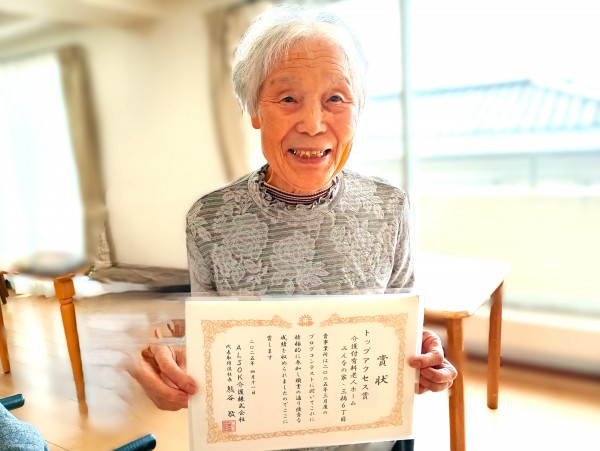 賞状
トップアクセス賞
介護付有料老人ホーム
みんなの家・三橋6丁目
貴事業所は二〇二五年三月度の
ブログコンテストに於いてこれに
積極的に参加し頭書の通り優秀な
成績を収められましたのでここに
賞します
二〇二五年四月十一日
ALSOK介護株式会社
代表取締役社長 熊谷 敬